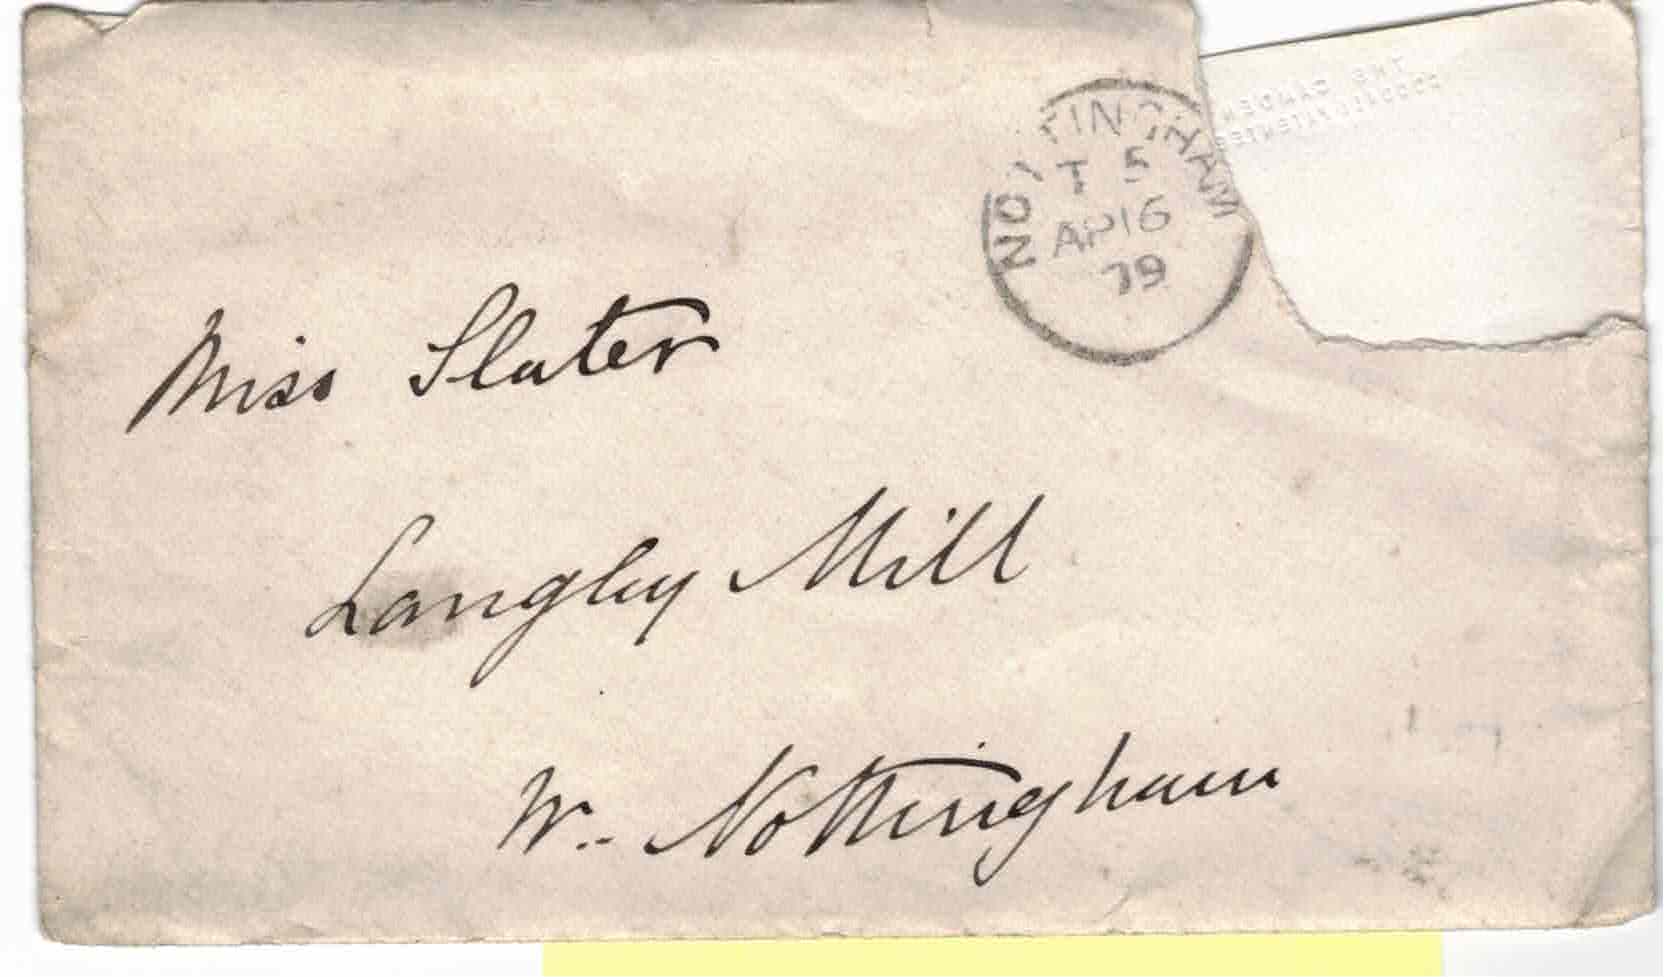 NOTTINGHAM
T 5
AP 16
79
Miss Slater
Langley Mill
Nr. Nottingham